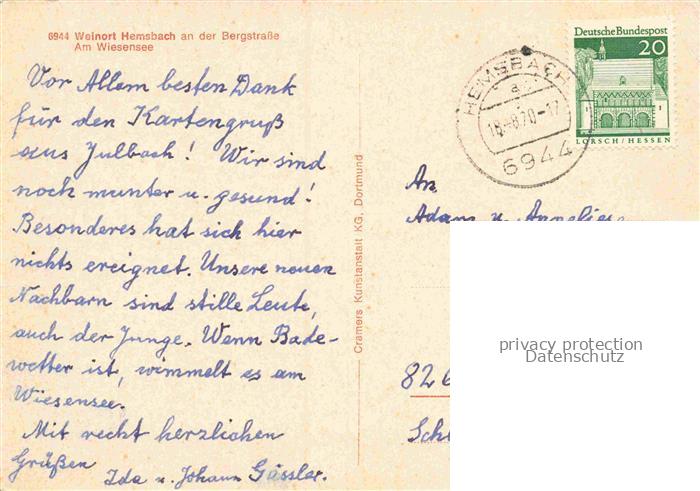 6944 Weinort Hemsbach an der Bergstraße
Am Wiesensee
Vor Allem besten Dank
für den Kartengruß
aus Julbach! Wir sind
noch munter u. gesund!
Besonderes hat sich hier
nichts ereignet. Unsere neuen
Nachbarn sind stille Leute,
auch der Junge. Wenn Bade-
wetter ist, wimmelt es am
Wiesensee.
Mit recht herzlichen
Grüßen
Ida u. Johann Gässler.
Cramers Kunstanstalt KG, Dortmund
HEMSBACH
a
18.-8.70-17
6944
Deutsche Bundespost
20
LORSCH/HESSEN
An
Adam u. Annelies
826
Sch
privacy protection
Datenschutz